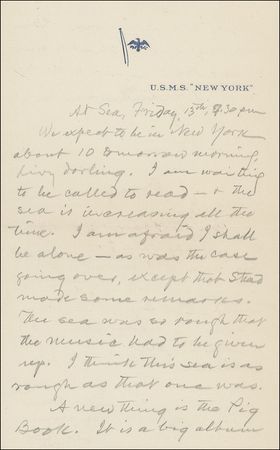 U.S.M.S. "NEW YORK"
At Sea, Friday, 13th, 7.30 pm
We expect to be in New York
about 10 tomorrow morning,
Livy darling. I am waiting
to be called to read — & the
sea is increasing all the
time. I am afraid I shall
be alone — as was the case
going over, except that Stead
made some remarks.
The sea was so rough that
the music had to be given
up. I think this sea is as
rough as that one was.
A new thing is the Pig
Book. It is a big album